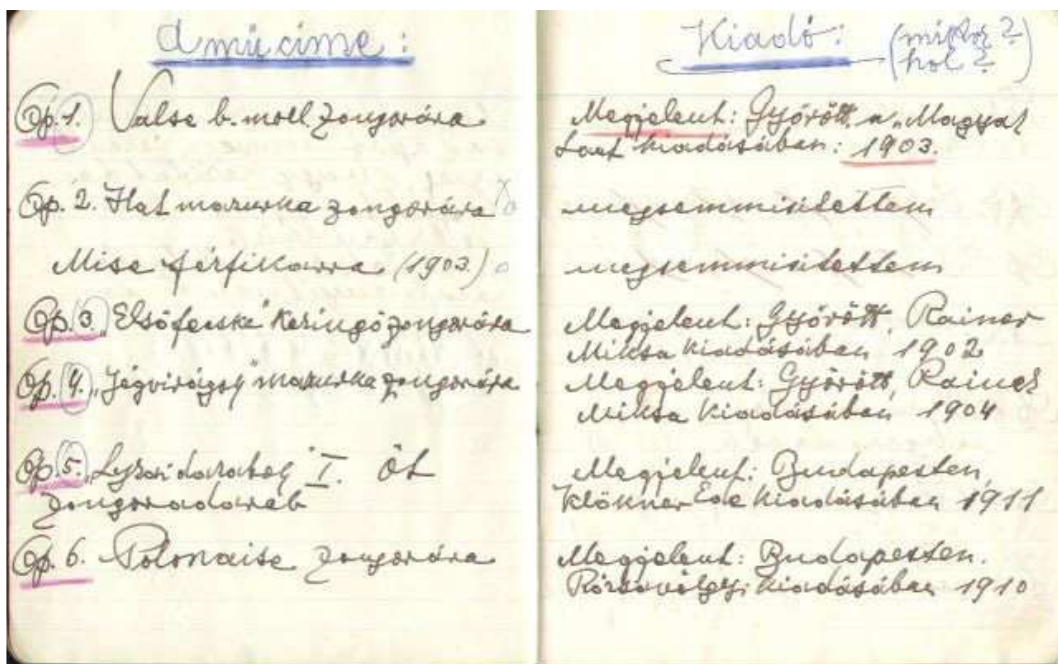 A mű címe:
Op. 1. Valse b. moll zongorára
Op. 2. Hat mazurka zongorára
Mise férfikarra (1903.)
Op. 3. „Elsőfecske" Keringő zongorára
Op. 4. „Jégvirágok" mazurka zongorára
Op. 5. „Lyrai darabok" I. öt
zongoradarab
Op. 6. Polonaise zongorára
Kiadó: (mikor?
hol?)
Megjelent: Győrött, a „Magyar
Lant" kiadásában: 1903.
megsemmisítettem
megsemmisítettem
Megjelent: Győrött, Rainer
Miksa kiadásában 1902
Megjelent: Győrött, Rainer
Miksa kiadásában, 1904
Megjelent: Budapesten,
Klökner Ede kiadásában 1911
Megjelent: Budapesten.
Rózsavölgyi kiadásában 1910